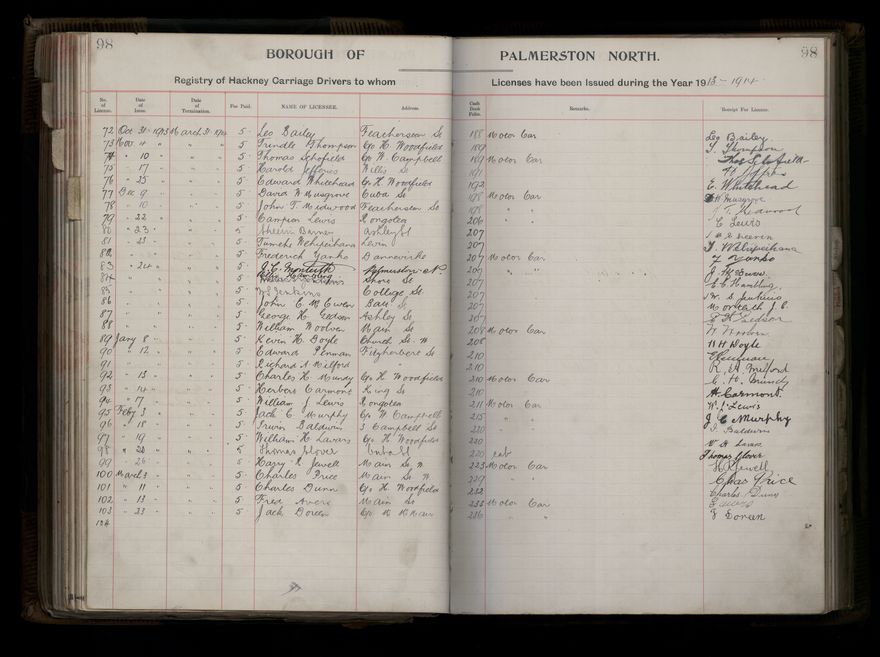 98
BOROUGH OF PALMERSTON NORTH.
98
Registry of Hackney Carriage Drivers to whom Licenses have been Issued during the Year 1913-1914
No. of License. Date of Issue. Date of Termination. Fee Paid. NAME OF LICENSEE. Address. Cash Book Folio. Remarks. Receipt For License.
72 Oct 31 1913 March 31 1914 5 Leo Bailey Featherston St 188 Motor Car Leo Bailey
73 Nov 4 " " 5 Trindle Thompson C/o H. Woodfield 189 T. Thompson
74 " 10 " " 5 Thomas Schofield C/o W. Campbell 189 Motor Car
75 " 17 " " 5 Harold Jeffries Willis St 191
76 " 25 " " 5 Edward Whitehead C/o H. Woodfield 192 E. Whitehead
77 Dec 9 " " 5 David W Musgrove Cuba St 198 Motor Car Musgrove
78 " 10 " " 5 John T. Midwood Featherston St 198 " "
79 " 22 " " 5 Campion Lewis Rongotea 206 " " C Lewis
80 " 23 " " 5 Ashley St 207
81 " 23 " " 5 Wehipeihana Levin 207 T. Wehipeihana
82 " " " 5 Frederick Yanko Dannevirke 207 Motor Car F Yanko
83 " 24 " " 5 J. C. Monteith Palmerston N. 207 " "
84 " " " 5 Hambling Shore St 207 Hambling
85 " " " 5 Jenkins College St 207 W. S. Jenkins
86 " " " 5 John E. McEwen 207 Monteith J. C.
87 " " " 5 George H. Gedson Ashley St 207 Gedson
88 " " " 5 William Woolven Main St 208 Motor Car W Woolven
89 Jany 8 " " 5 Keven H. Doyle Church St. W 208 Doyle
90 " 12 " " 5 Edward Penman Fitzherbert St 210 E Penman
91 " " " 5 Richard A. Milford " 210 R. A. Milford
92 " 13 " " 5 Charles H. Mundy C/o H. Woodfield 210 Motor Car C. H. Mundy
93 " 14 " " 5 Herbert Carmont King St 210 " H. Carmont
94 " 17 " " 5 William J. Lewis Rongotea 211 Motor Car W. J. Lewis
95 Feby 3 " " 5 Jack C. Murphy C/o W. Campbell 215 " " J C Murphy
96 " 18 " " 5 Irwin Baldwin S Campbell St 220 " " I. Baldwin
97 " 19 " " 5 William H. Lavars C/o H. Woodfield 220 W H Lavars
98 " 20 " " 5 Thomas Glover Cuba St 220 cab Thomas Glover
99 " 26 " " 5 Harry R Jewell Main St. W 223 Motor Car H R Jewell
100 March 3 " " 5 Charles Price Main St. W 229 " " Chas Price
101 " 11 " " 5 Charles Dunn C/o H. Woodfield 232 Charles Dunn
102 " 13 " " 5 Fred Avers Main St 233 Motor Car
103 " 23 " " 5 Jack Doreen C/o 236 " " J Doreen
104